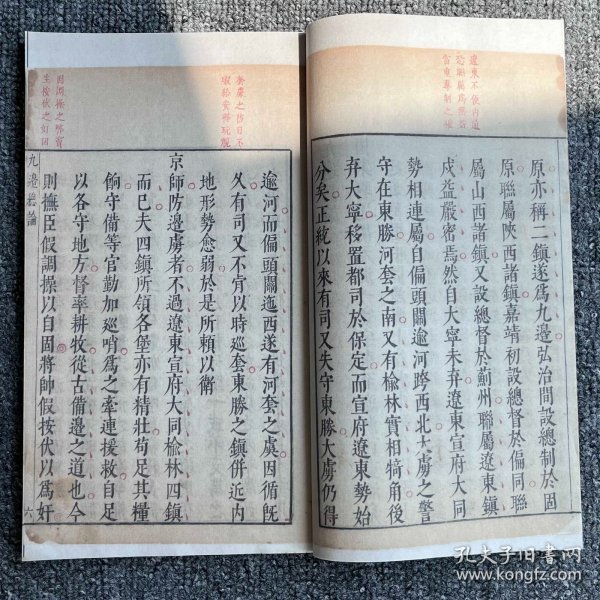 原亦稱二鎮遂爲九邊弘治間設總制於固
原聯屬陜西諸鎮嘉靖初設總督於偏同聯
屬山西諸鎮又設總督於薊州聯屬遼東鎮
戍益嚴密焉然自大寧未棄遼東宣府大同
勢相連屬自偏頭關逾河跨西北大虜之警
守在東勝河套之南又有榆林實相犄角後
棄大寧移置都司於保定而宣府遼東勢始
分矣正統以來有司又失守東勝大虜仍得
逾河而偏頭關迤西遂有河套之虞因循旣
久有司又不官以時巡套東勝之鎮併近內
地形勢愈弱於是所頼以衛
京師防邊虜者不過遼東宣府大同榆林四鎮
而已夫四鎮所領各堡亦有精壯苟足其糧
餉守備等官勤加巡哨爲之牽連援救自足
以各守地方督率耕牧從古備邊之道也今
則撫臣假調操以自固將帥假按伏以爲奸
九邊總論
六
孔夫子旧书网
www.kongfz.com